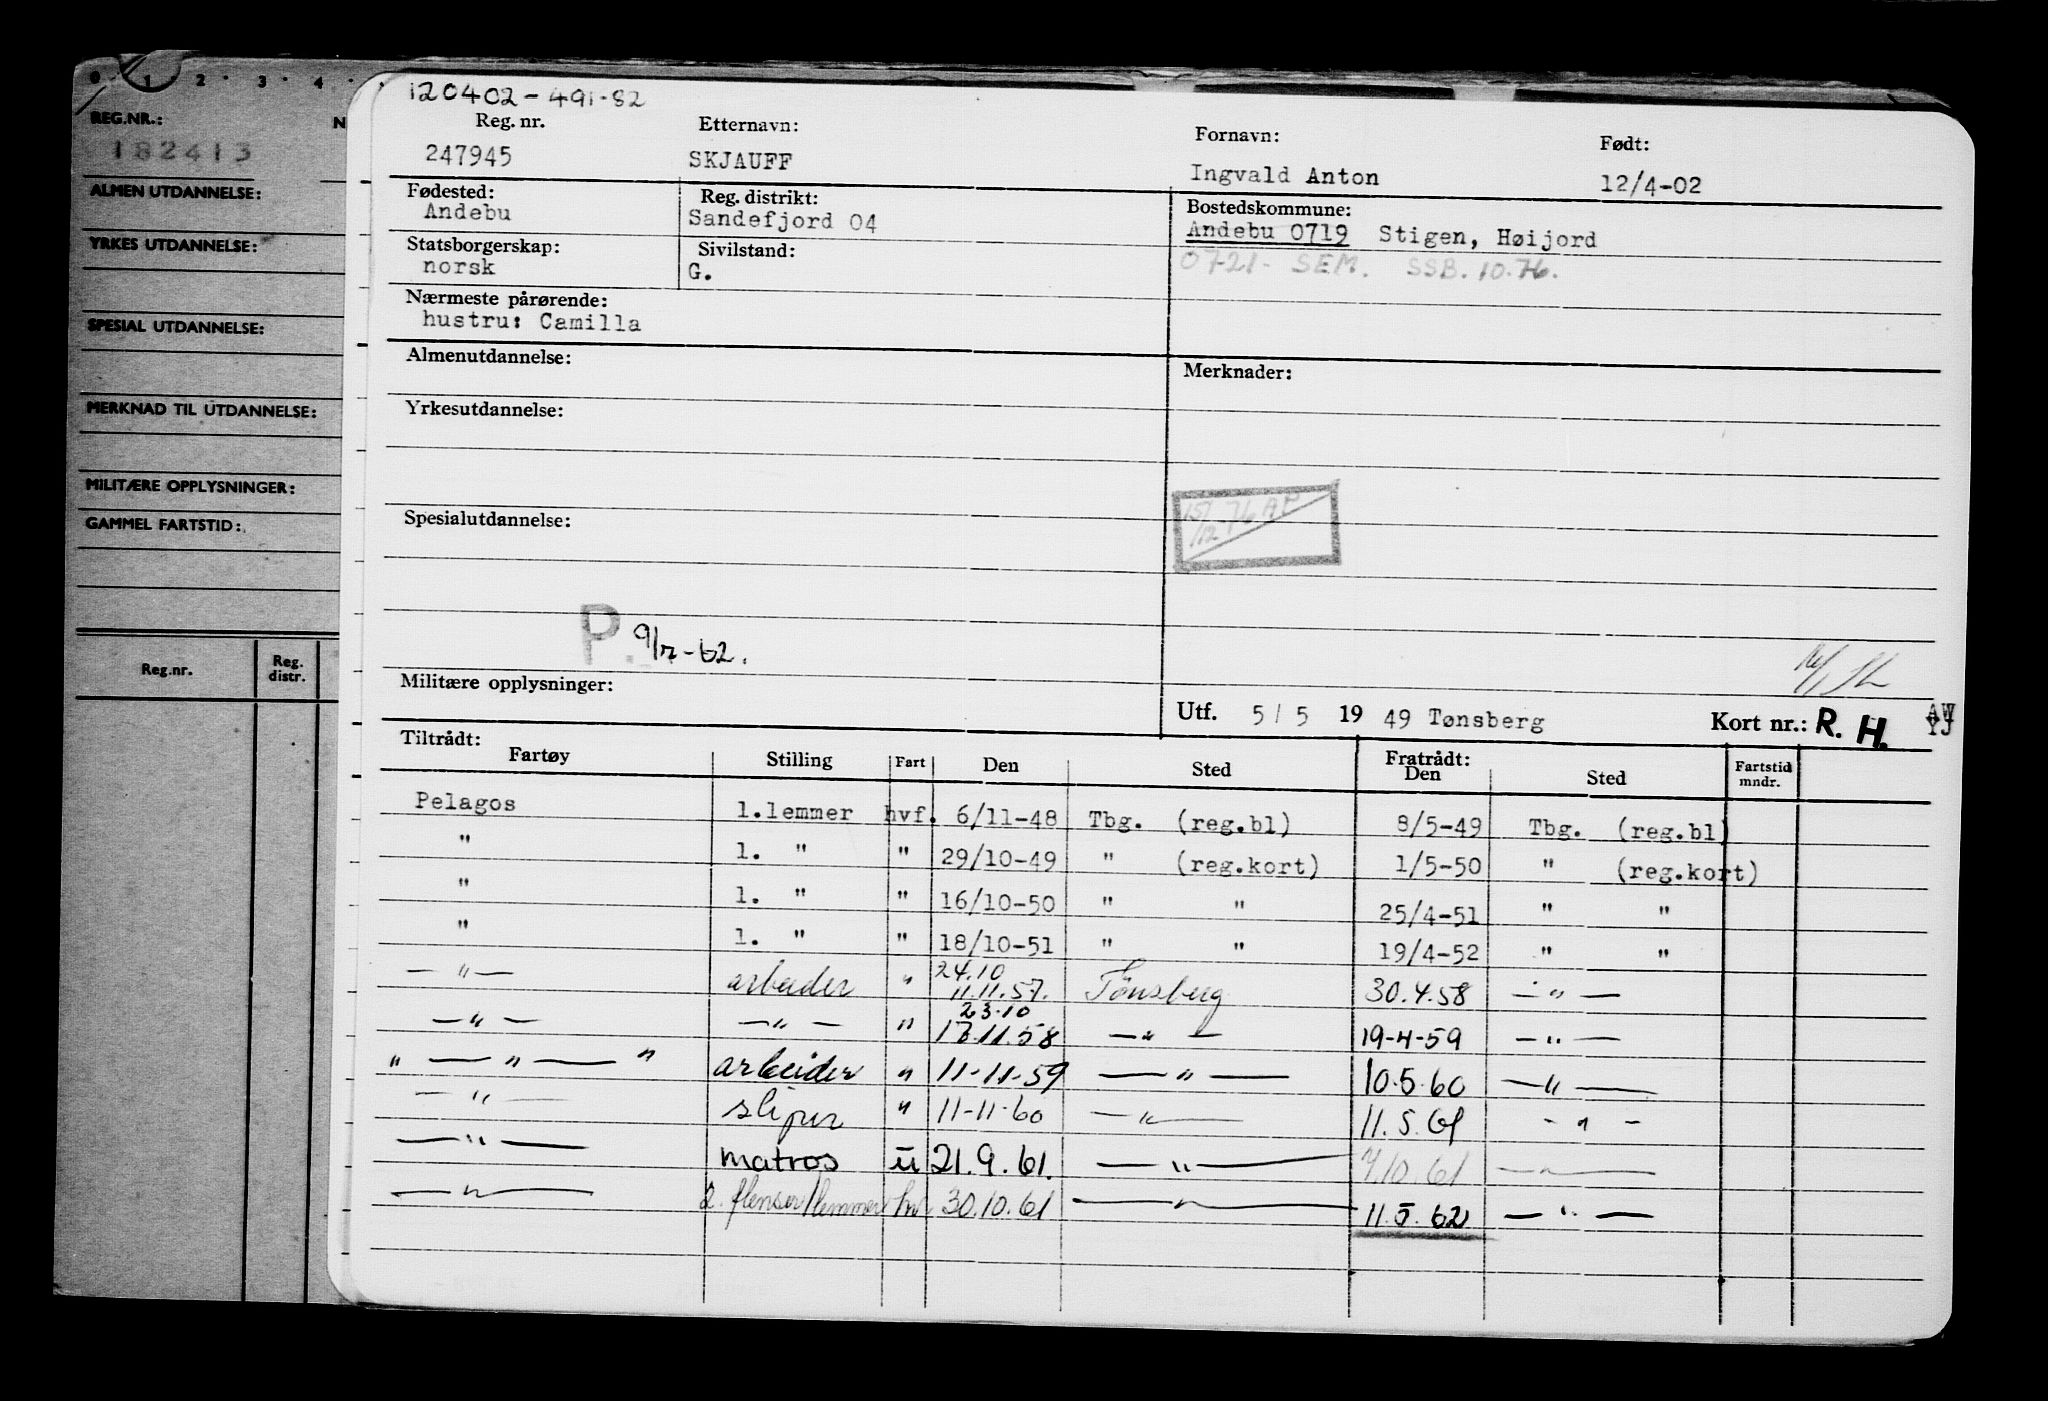 0 · 1 2 · 3 · 4 ·
REG.NR.: N
182413
ALMEN UTDANNELSE:
YRKES UTDANNELSE:
SPESIAL UTDANNELSE:
MERKNAD TIL UTDANNELSE:
MILITÆRE OPPLYSNINGER:
GAMMEL FARTSTID:
Reg.nr. Reg. distr.
120402-491-82
Reg. nr. Etternavn: Fornavn: Født:
247945 SKJAUFF Ingvald Anton 12/4-02
Fødested: Reg. distrikt: Bostedskommune:
Andebu Sandefjord 04 Andebu 0719 Stigen, Høijord
Statsborgerskap: Sivilstand: 0721- SEM. SSB. 10.76.
norsk G.
Nærmeste pårørende:
hustru: Camilla
Almenutdannelse: Merknader:
Yrkesutdannelse:
15/12 76 AP
Spesialutdannelse:
P. 9/7-62.
Militære opplysninger:
Utf. 5 / 5 19 49 Tønsberg Kort nr.: R. H. AW YJ
Tiltrådt: Fratrådt:
Fartøy Stilling Fart Den Sted Den Sted Fartstid mndr.
Pelagos 1.lemmer hvf. 6/11-48 Tbg. (reg.bl) 8/5-49 Tbg. (reg.bl)
" 1. " " 29/10-49 " (reg.kort) 1/5-50 " (reg.kort)
" 1. " " 16/10-50 " " 25/4-51 " "
" 1. " " 18/10-51 " " 19/4-52 " "
24.10
— " — arbeider " 11.11.57. Tønsberg 30.4.58 — " —
23.10
— " — — " — " 13.11.58 — " — 19-4-59 — " —
" — " — " arbeider " 11-11-59 — " — 10.5.60 — " —
— " — sliper " 11-11-60 — " — 11.5.61 - " -
— " — matros u 21.9.61. — " — 7.10.61 — " —
— " — 2. flenser/lemmer hv 30.10.61 — " — 11.5.62 — " —